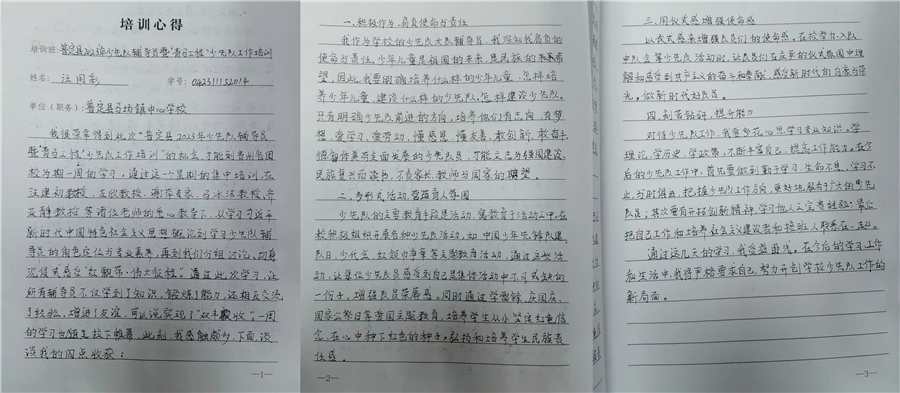 培训心得
培训班:普定县2023年少先队辅导员暨“青马工程”少先队工作培训
姓名: 汪国彪 学号: 042311132014
单位(职务): 普定县马场镇中心学校
我很荣幸得到此次“普定县2023年少先队辅导员
暨“青马工程”少先队工作培训”的机会,才能到贵州省团
校为期一周的学习,通过这一星期的集中培训,在
汪建初教授、王欣教授、谢萍专家、马冰洁教授、齐
亚静教授等诸位老师的悉心教导下,从学习习近平
新时代中国特色社会主义思想概论到学习少先队辅
导员的角色定位与专业素养,再到我们分组讨论,切身
沉浸式感受“红飘带·伟大征程”。通过此次学习,让
所有辅导员不仅学到了知识,锻炼了能力,还相互交流
了经验,增进了友谊,可以说实现了“双丰收”。一周
的学习也即将拉下帷幕,此刻,我感触颇多,下面,谈
谈我的四点收获:
—1—
一、积极作为,肩负使命与责任
我作为学校的少先队大队辅导员,我深知我肩负的
使命与责任。少年儿童是祖国的未来,是民族的未来希
望。因此,我要明确培养什么样的少年儿童,怎样培
养少年儿童,建设什么样的少先队,怎样建设少先队。
只有明确少先队前进的方向,培养他们有志向、有梦
想,爱学习、爱劳动,懂感恩、懂友善,敢创新、敢奋斗,
德智体美劳全面发展的少先队员,才能立志为强国建设、
民族复兴而读书,不负家长、教师与国家的期望。
二、多形式活动,营造育人氛围
少先队的主要教育手段是活动,寓教育于活动之中。在
校积极组织开展各种少先队活动,如中国少年先锋队建
队日,少代会,红领巾争章等主题教育活动,通过这些活
动,让每位少先队员感受到自己是集体活动中不可或缺的
一份子,增强队员荣辱感。同时通过学雷锋、庆国庆、
国家公祭日等爱国主题教育,培养学生从小坚定红色信
念,在心中种下红色的种子,弘扬和培养学生民族责
任感。
—2—
三、用仪式感增强使命感
以仪式感来增强队员们的使命感。在校举办入队、
中队会等少先队活动时,让队员们在庄严的仪式氛围中理
解和感受到共产主义的奋斗和奉献,感受新时代的自豪与荣
光,做新时代好队员。
四、刻苦钻研,提升能力
对待少先队工作,我要多花心思学习专业知识。学
理论,学历史,学政策,不断丰富自己,提高工作能力。在今
后的少先队工作中,首先要做到勤于学习,生命不息,学习不
止,与时俱进,把握少先队工作方向,更好地服务于广大的少先
队员;其次要有开拓创新精神,学习他人之宝贵经验;最后
把自己工作和培养社会主义建设者和接班人联系在一起。
通过这几天的学习,我受益匪浅,在今后的学习工作
和生活中,我将严格要求自己,努力开创学校少先队工作的
新局面。
—3—